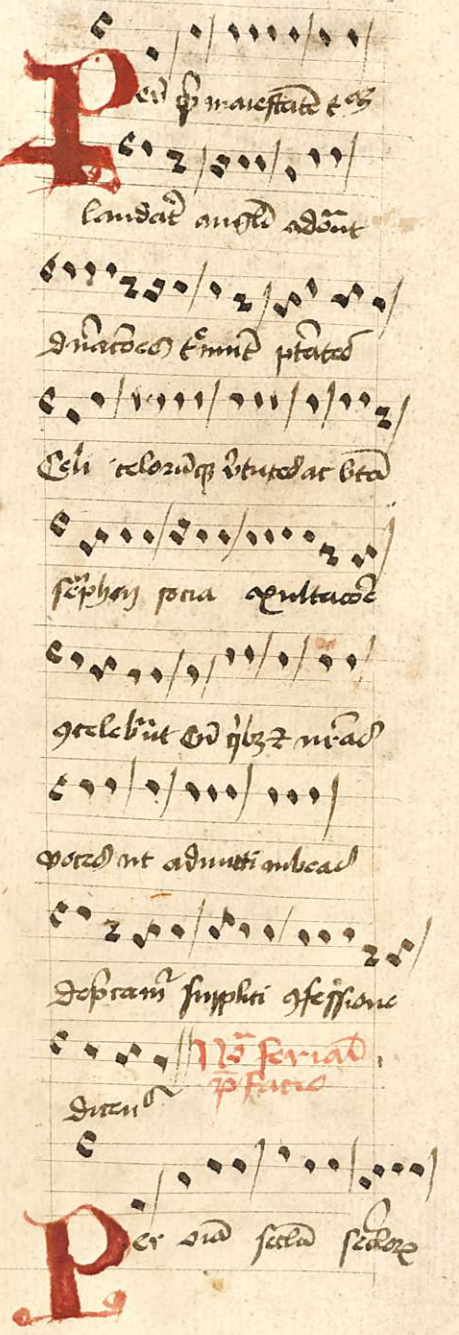 Per quē maiestatē tuā
laudāt angeli adorāt
dnacōes tremūt ptātes
Celi celorūq vtutes ac btā
seraphin socia exultacōe
ɔcelebrāt Cū qbz et nrās
voces ut admitti iubeas
depcam supplici ɔfessione
dicētes
Nō feriale
pfacio
Per oīa secla seclorꝝ